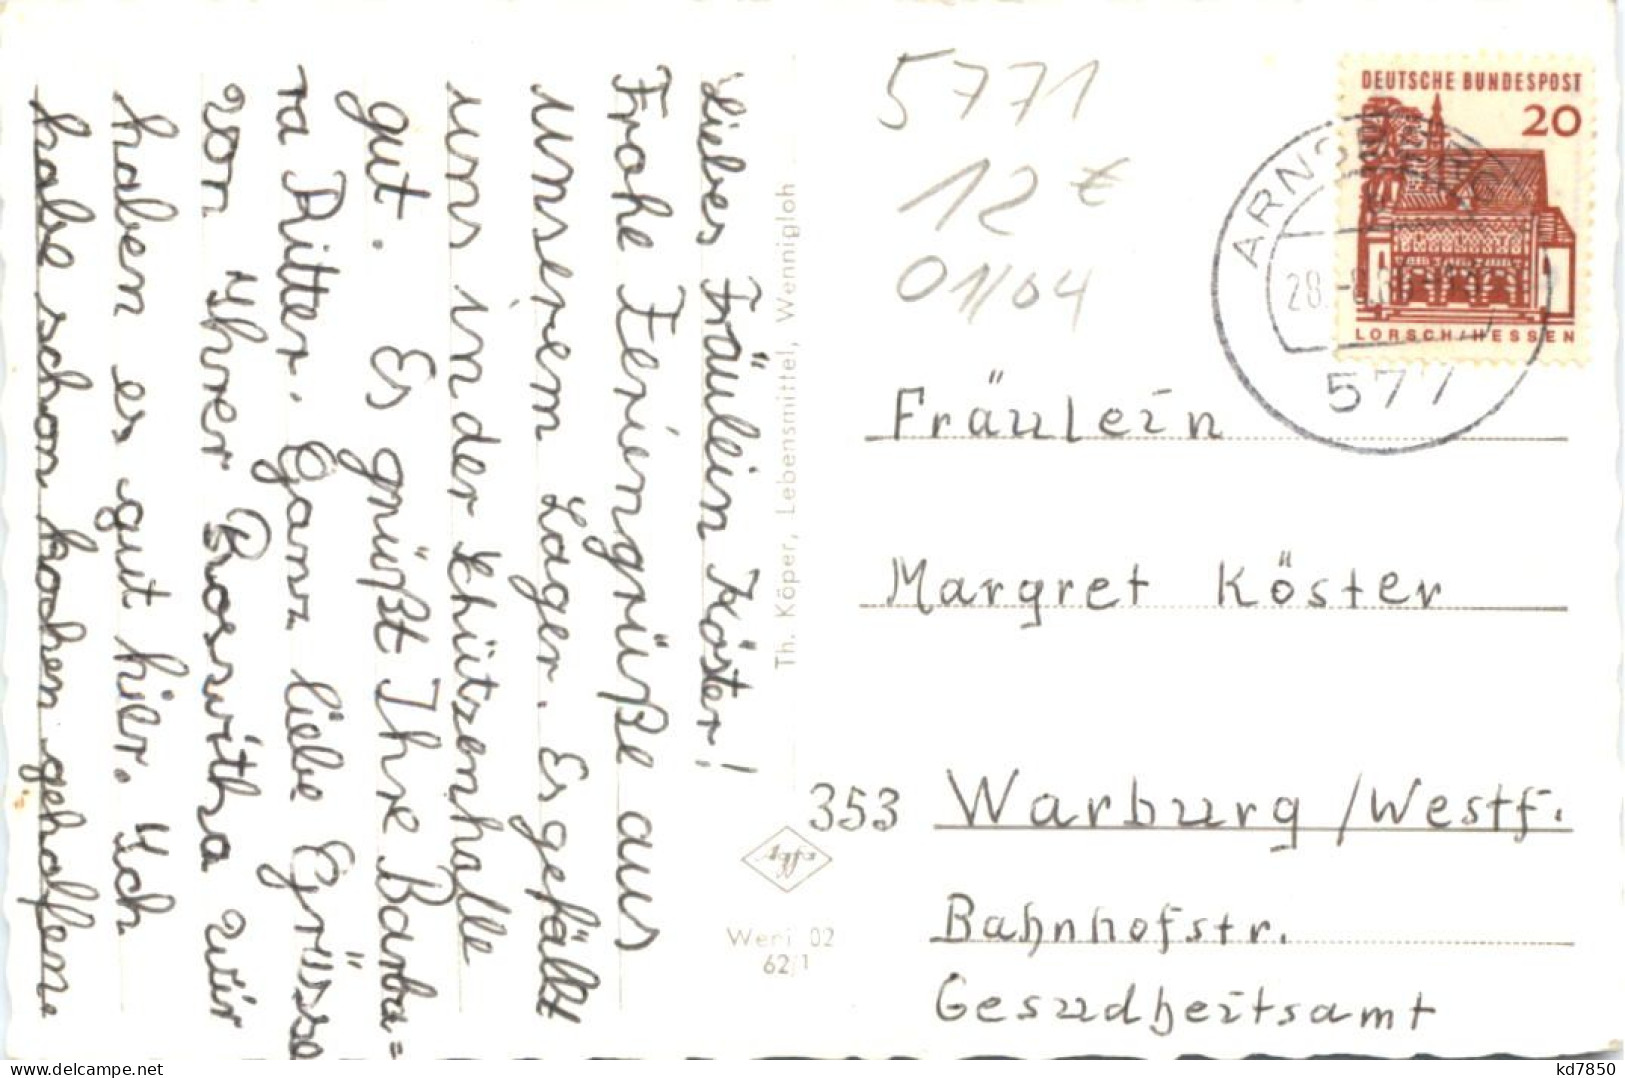 Liebes Fräulein Köster!
Frohe Feriengrüße aus
unserem Lager. Es gefällt
uns in der Schützenhalle
gut. Es grüßt Ihre Barba=
ra Ritter. Ganz liebe Grüsse
von Ihrer Roswitha wir
haben es gut hier. Ich
habe schon kochen geholfen.
Th. Köper, Lebensmittel, Wennigloh
Agfa
Weni 02
62/1
5771
12 €
01/04
DEUTSCHE BUNDESPOST
20
LORSCH/HESSEN
577
Fräulein
Margret Köster
353 Warburg /Westf.
Bahnhofstr.
Gesudheitsamt
kd7850